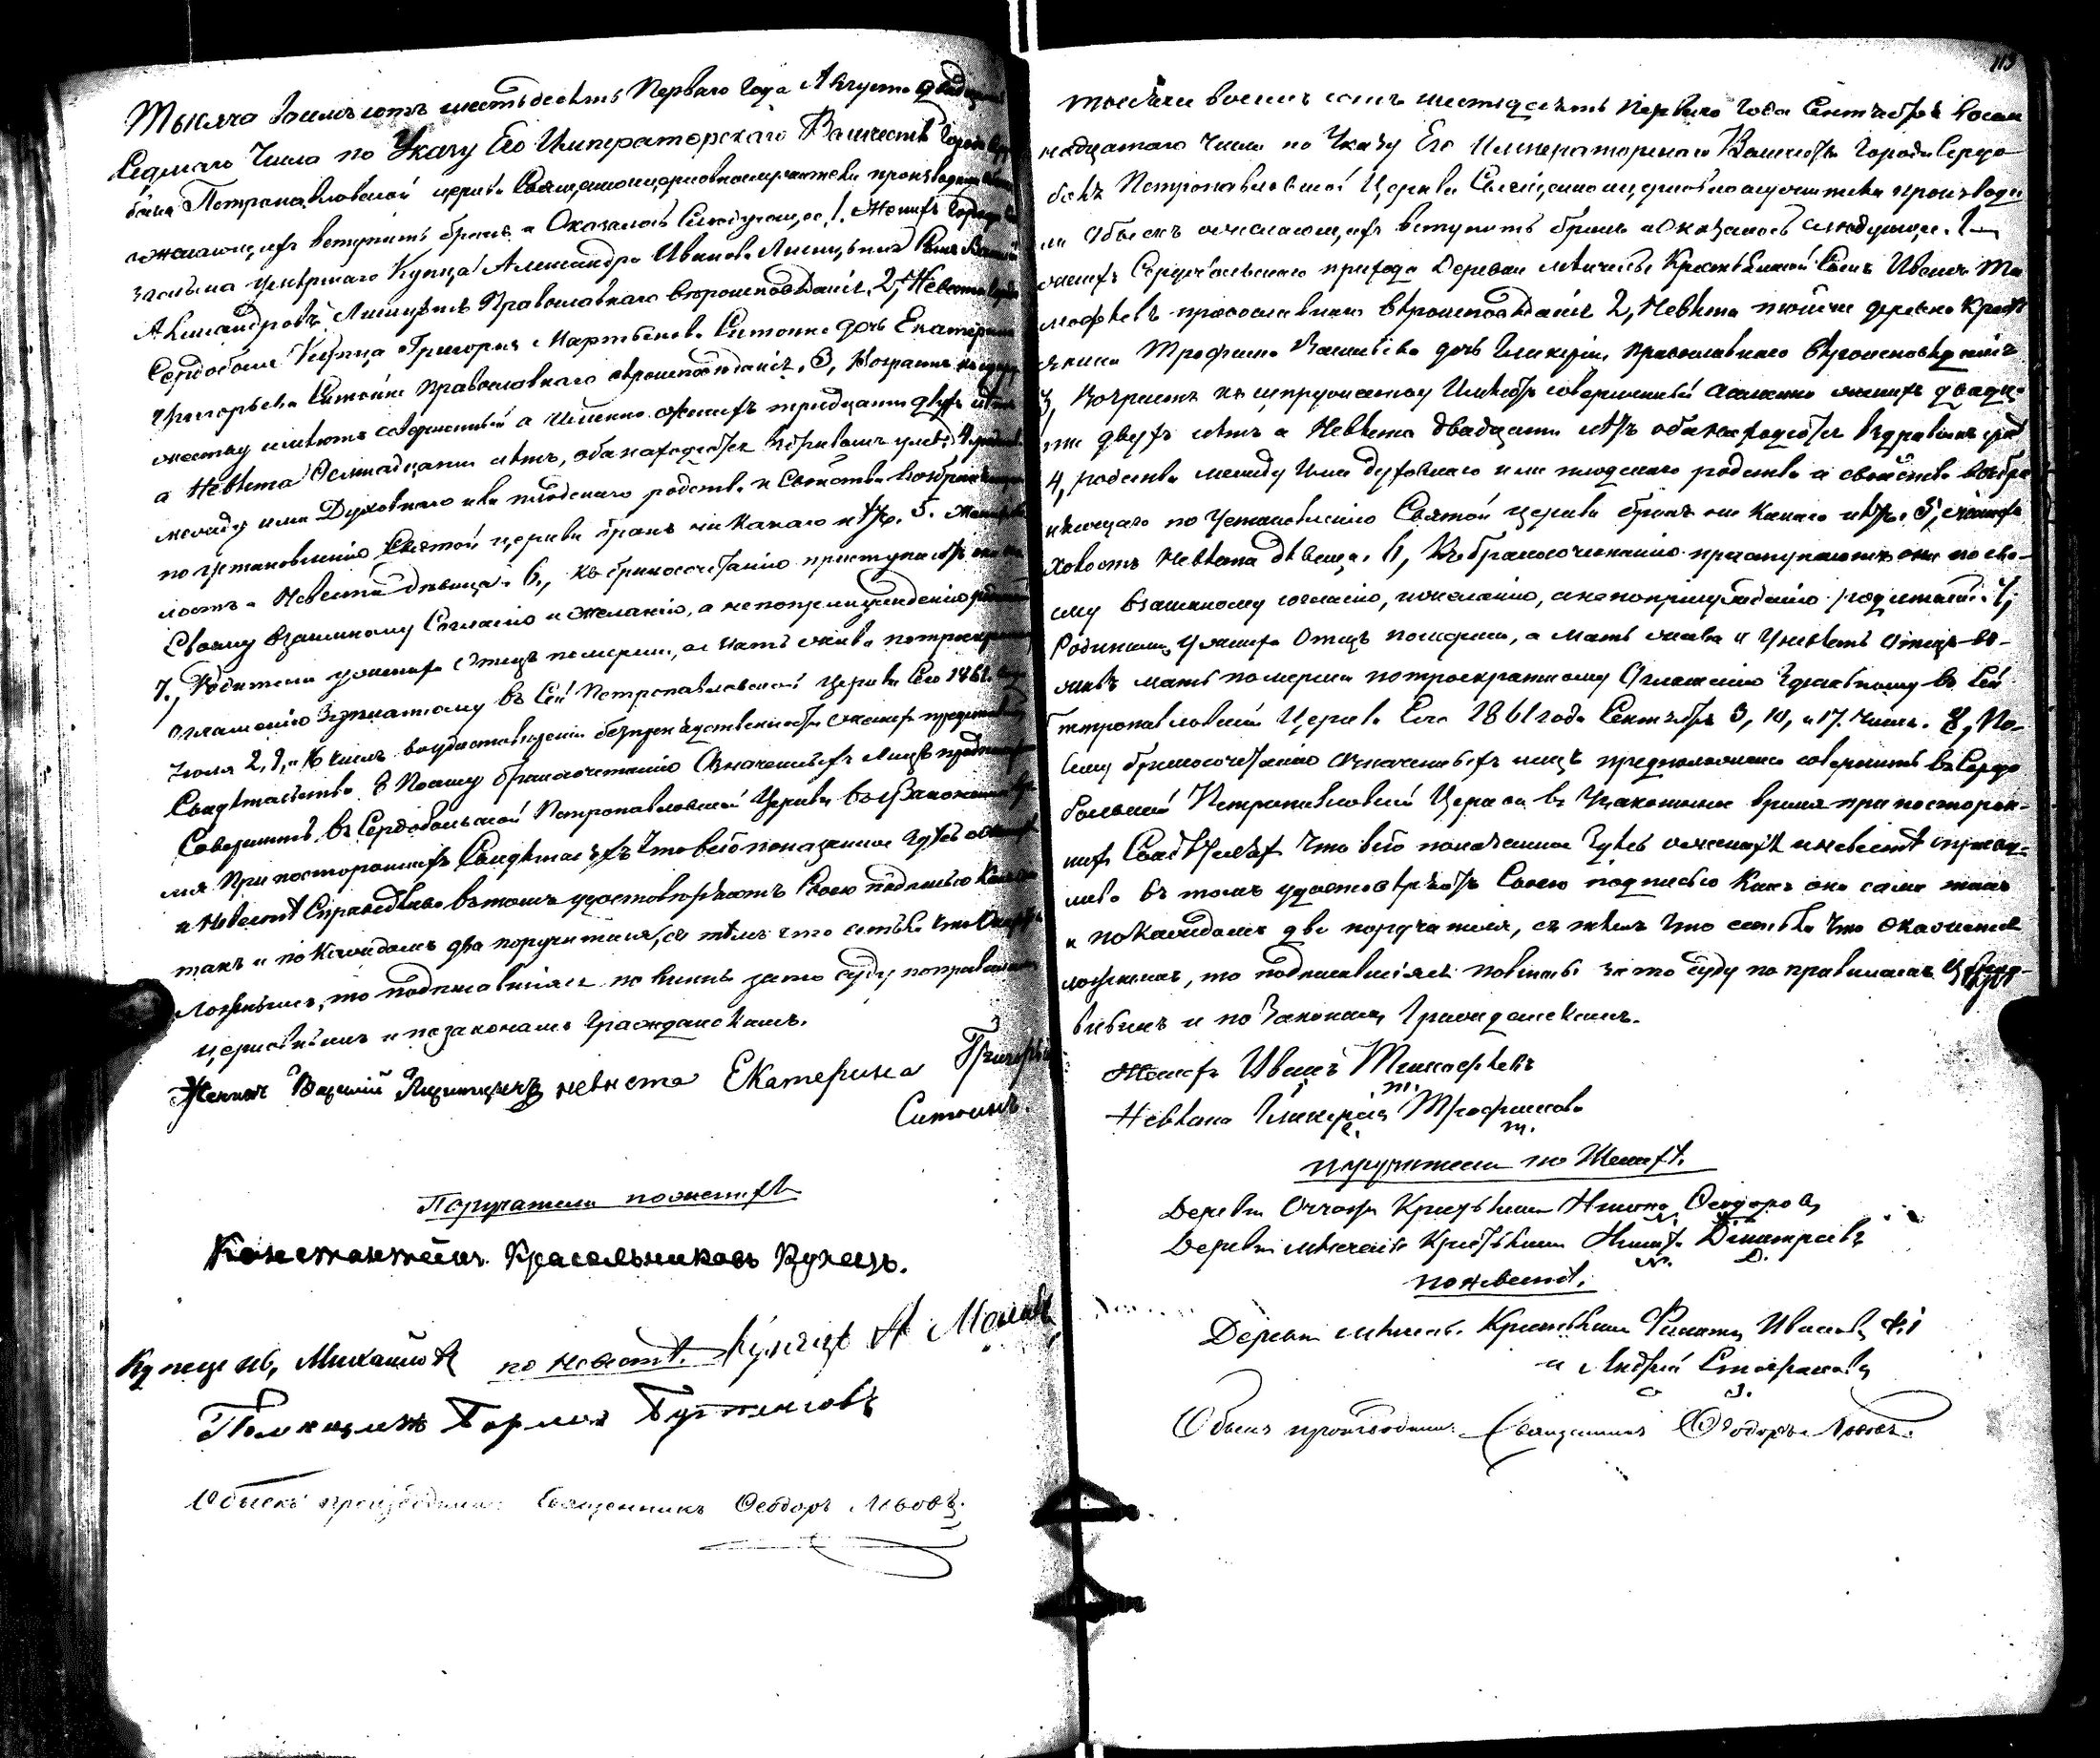 Тысяча восемьсотъ шестьдесятъ Перваго Года Августа двадцать
Седмаго Числа по Указу Его Императорскаго Величества Города Сер
боля Петропавловской церкви Священноцерковнослужители производили
о желающихъ вступить бракъ и Оказалось Следующее, 1. Женихъ Города
умершаго Купца Александра Иванова Лисицына Сынъ Василий
Александровъ Лисицынъ Православнаго вероисповѣданія, 2, Невеста Города
Сердоболя Купца Григорія Мартынова Ситонина дочь Екатерина
Григорьева Ситонина Православнаго вероисповѣданія, 3, Возрастъ къ супру
жеству имѣютъ совершенный а именно женихъ тридцати двухъ лѣтъ
а Невѣста Осемнадцати лѣтъ, оба находятся въ здравомъ умѣ, 4, родства
между ими Духовнаго или плотскаго родства и Свойства возбраняющаго
по установленію Святой церкви бракъ никакаго нѣтъ. 5. Женихъ
лостъ а Невеста дѣвица. 6., къ бракосочетанію приступаютъ они по
Своему взаимному Согласію и желанію, а не по принужденію родителей
7., Родители у жениха Отецъ померши, а мать жива по троекратному
оглашенію Здѣланному въ Сей Петропавловской Церкви Сего 1861 года
Июля 2, 9, и 16 числъ
Свидѣтельство 8 Посему бракосочетанію Означенныхъ Лицъ предположено
Совершить въ Сердобольской Петропавловской Церкви въ Узаконенное вре
мя При постороннихъ Свидѣтеляхъ Что все показанное здѣсь о женихѣ
и Невестѣ Справедливо въ томъ удостовѣряютъ Своею подписью Какъ они
такъ и по каждомъ два поручителя, съ тѣмъ что естьли что Окажется
Ложнымъ, то подписавшіяся повинны за то суду по правиламъ
церковнымъ и по законамъ Гражданскимъ.
Женихъ Василий Лисицынъ невѣста Екатерина Григорьева
Ситонина.
Поручатели по женихѣ
Константинъ Красельниковъ Купецъ.
Купецъ Ив, Михайловъ по невестѣ. Купецъ А
Обыскъ производилъ: Священникъ Ѳеодоръ Львовъ.
113
Тысяча восемь сотъ шестьдесятъ Перваго Года Сентября восем
надцатаго Числа по Указу Его Императорскаго Величества Города Сердо
боля Петропавловской Церкви Священноцерковнослужители производи
ли Обыскъ о желающихъ вступить бракъ и оказалось следующее. 1
женихъ Сердобольскаго прихода Деревни Крестьянской Сынъ Иванъ Ти
мофеевъ православнаго вѣроисповѣданія 2, Невѣста той же деревни Крест
янина Трофима Васильева дочь Гликерія православнаго вѣроисповѣданія
3, Возрастъ къ супружеству Имѣютъ совершенный а именно женихъ двадца
ти двухъ лѣтъ а Невѣста двадцати лѣтъ оба находятся въ здравомъ умѣ
4, родства между ими духовнаго или плотскаго родства и свойства возбра
няющаго по Установленію Святой церкви бракъ ни какаго нѣтъ. 5, женихъ
холостъ Невѣста дѣвица. 6, Къ бракосочетанію приступаютъ они по сво-
ему взаимному согласію, и желанію, а не по принужденію родителей. 7,
Родители, у жениха Отецъ померши, а мать жива и у невѣсты отецъ въ-
живѣ мать померши по троекратному Оглашенію Здѣланному въ Сей
Петропавловской Церкви Сего 1861 года Сентября 3, 10, и 17. числъ. 8, По-
сему бракосочетанію означенныхъ лицъ предположено совершить въ Сердо
больской Петропавловской Церкви въ Узаконенное время при посторон-
нихъ Свидѣтеляхъ что все показанное Здѣсь о женихѣ и невестѣ справед-
ливо въ томъ удостовѣряютъ Своею подписью Какъ они сами такъ
и по каждомъ два поручателя, съ тѣмъ что естьли что окажется
ложнымъ, то подписавшіяся повинны за то суду по правиламъ церко-
внымъ и по Законамъ Гражданскимъ.
Женихъ Иванъ Тимофеевъ
Невѣста Гликерія Трофимова
поручатели по Женихѣ.
Деревни Крестьянинъ Ѳеодоровъ
Деревни Крестьянинъ Никита Дмитріевъ
по невестѣ.
Деревни Крестьянинъ Филиппъ Ивановъ
и Андрей
Обыскъ производилъ: Священникъ Ѳеодоръ Львовъ.